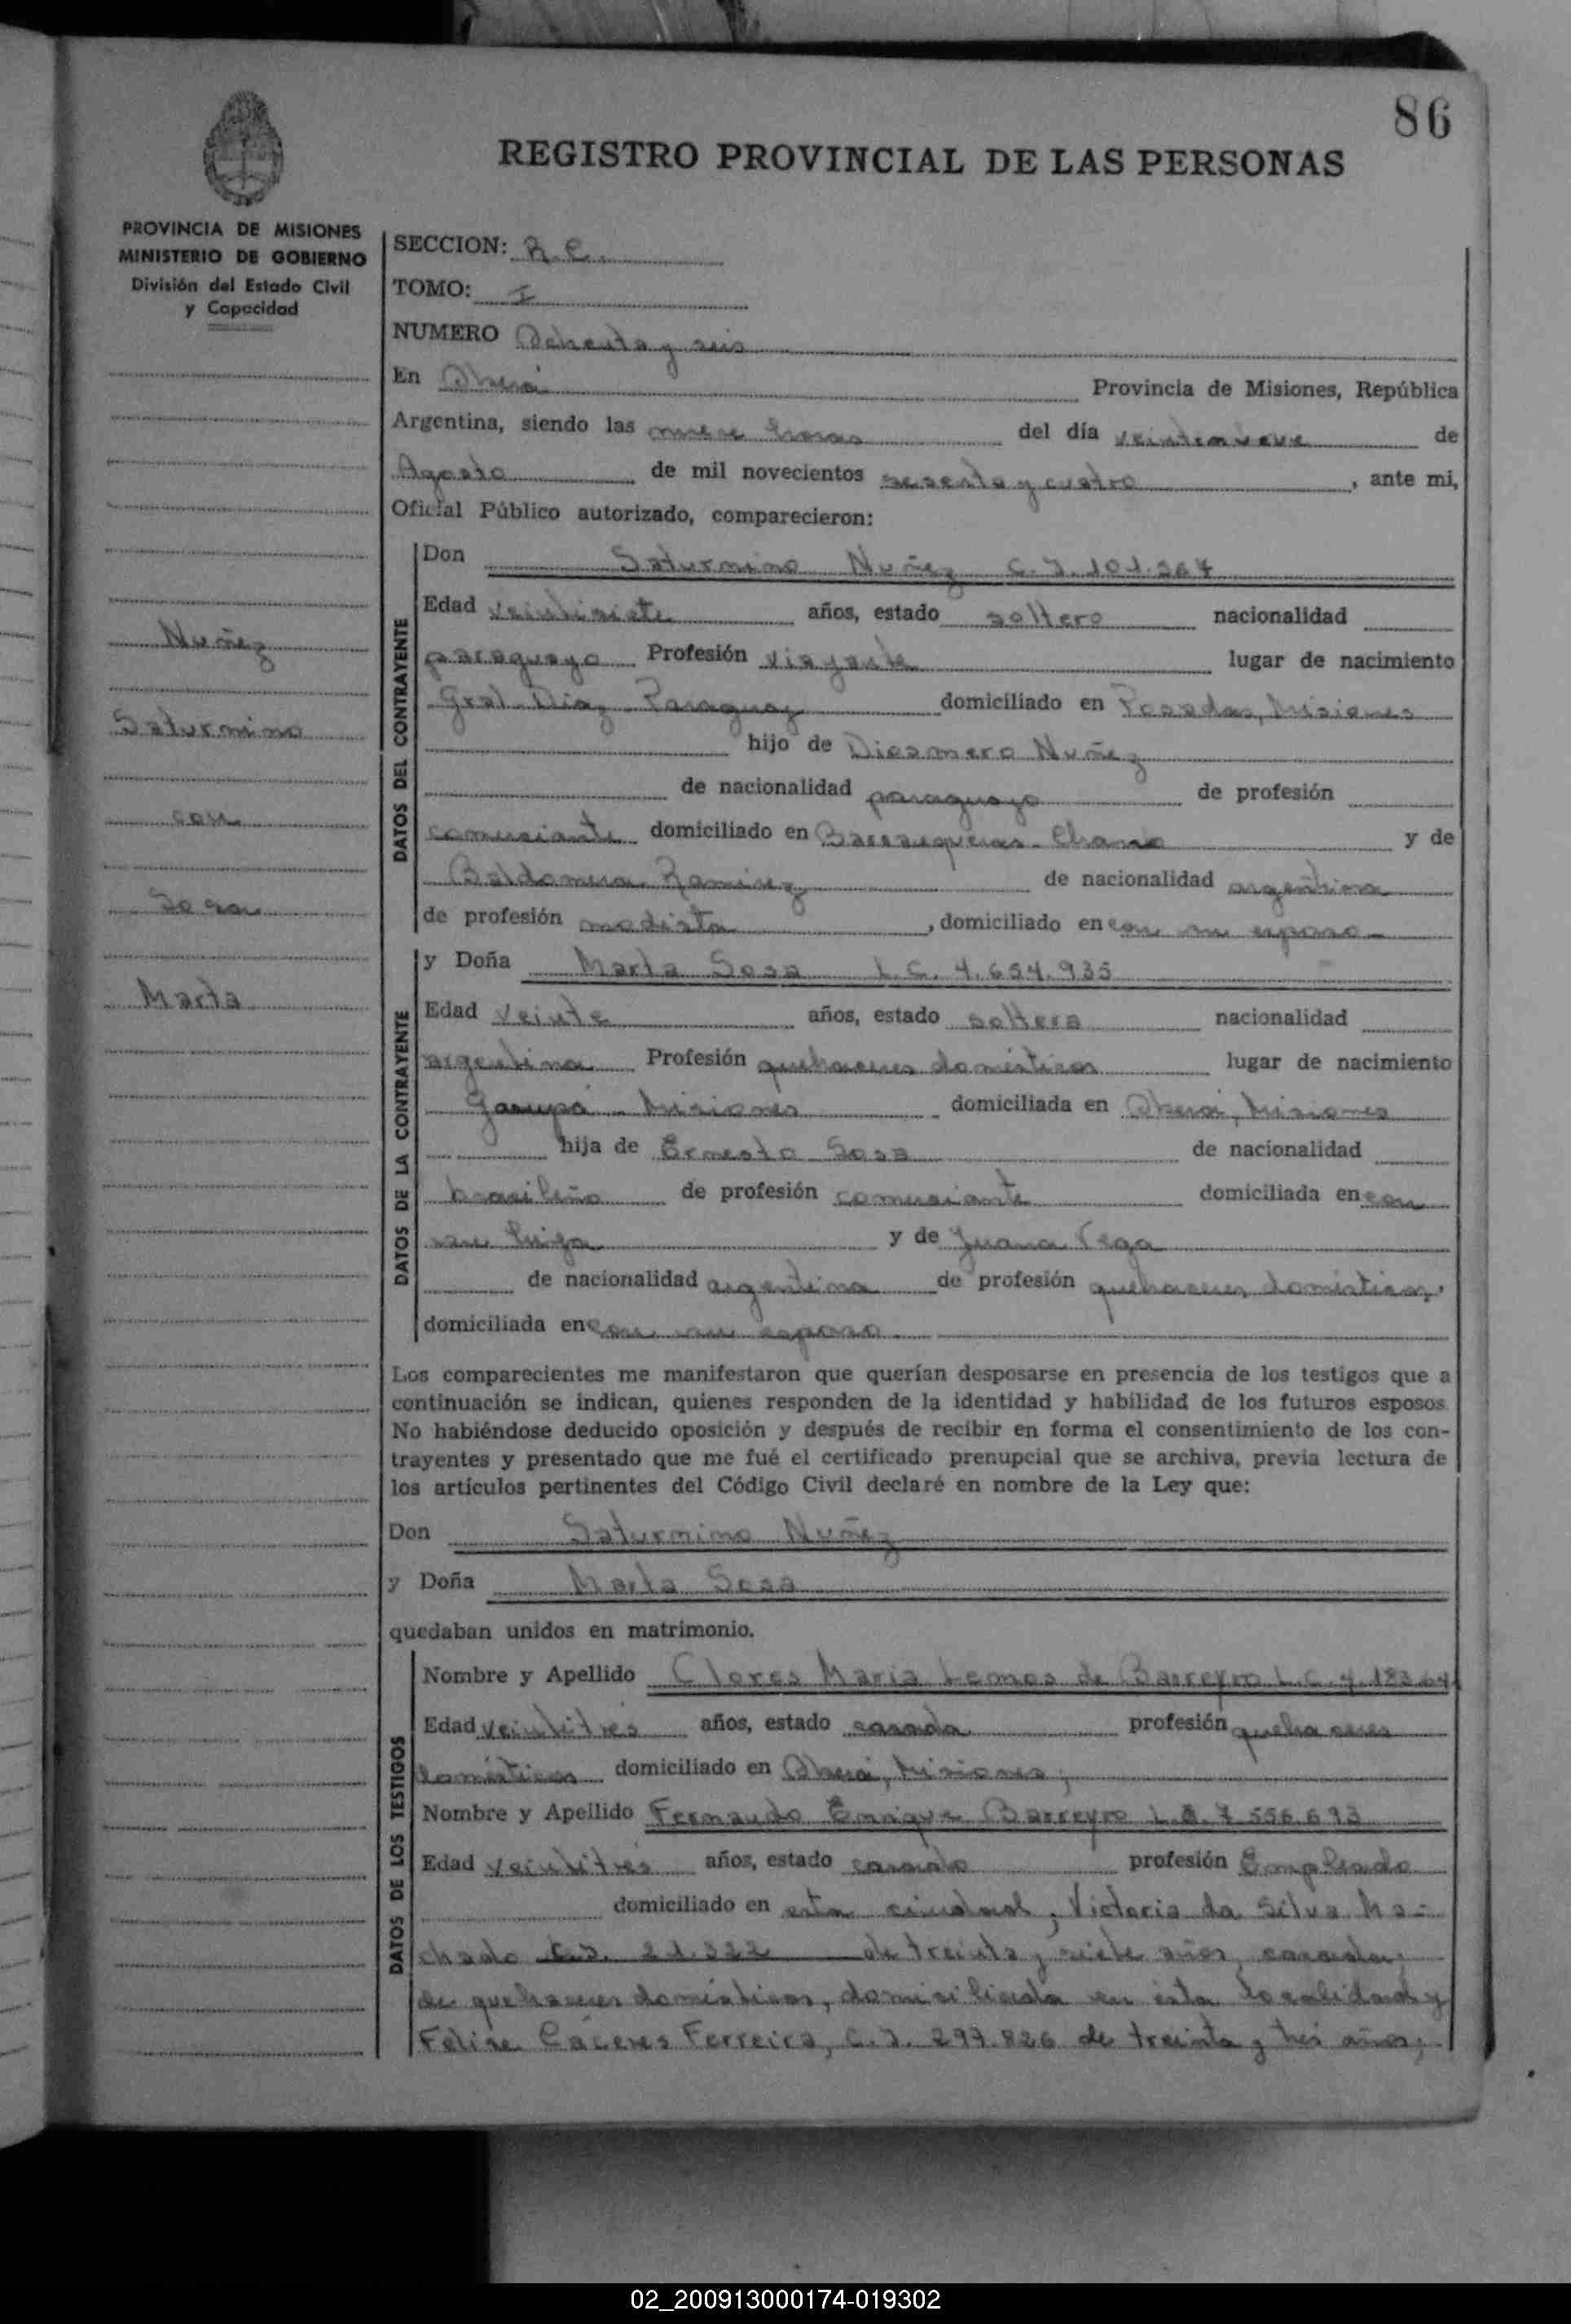 86
REGISTRO PROVINCIAL DE LAS PERSONAS
PROVINCIA DE MISIONES
MINISTERIO DE GOBIERNO
División del Estado Civil
y Capacidad
Nuñez
Saturnino
con
Sosa
Marta
SECCION: R.C.
TOMO: I
NUMERO Ochenta y seis
En Oberá Provincia de Misiones, República
Argentina, siendo las nueve horas del día veintenueve de
Agosto de mil novecientos sesenta y cuatro, ante mi,
Oficial Público autorizado, comparecieron:
DATOS DEL CONTRAYENTE
Don Saturnino Nuñez C.I. 101.267
Edad veintisiete años, estado soltero nacionalidad
paraguayo Profesión viajante lugar de nacimiento
Gral. Diaz Paraguay domiciliado en Posadas, Misiones
hijo de Diosmero Nuñez
de nacionalidad paraguayo de profesión
comerciante domiciliado en Barranqueras - Chaco y de
Baldomera Ramirez de nacionalidad argentina
de profesión modista, domiciliado en con su esposo
DATOS DE LA CONTRAYENTE
y Doña Marta Sosa L.C. 4.654.935
Edad veinte años, estado soltera nacionalidad
argentina Profesión quehaceres domésticos lugar de nacimiento
Garupá - Misiones domiciliada en Oberá, Misiones
hija de Ernesto Sosa de nacionalidad
brasileño de profesión comerciante domiciliada en con
su hija y de Juana Vega
de nacionalidad argentina de profesión quehaceres domésticos,
domiciliada en con su esposo
Los comparecientes me manifestaron que querían desposarse en presencia de los testigos que a
continuación se indican, quienes responden de la identidad y habilidad de los futuros esposos.
No habiéndose deducido oposición y después de recibir en forma el consentimiento de los con-
trayentes y presentado que me fué el certificado prenupcial que se archiva, previa lectura de
los artículos pertinentes del Código Civil declaré en nombre de la Ley que:
Don Saturnino Nuñez
y Doña Marta Sosa
quedaban unidos en matrimonio.
DATOS DE LOS TESTIGOS
Nombre y Apellido Clores Maria Lemos de Barreyro L.C. 4.183.64
Edad veintitrés años, estado casada profesión quehaceres
domésticos domiciliado en Oberá, Misiones;
Nombre y Apellido Fernando Enrique Barreyro L.E. 7.556.693
Edad veintitrés años, estado casado profesión Empleado
domiciliado en esta ciudad; Victoria da Silva Ma-
chado C.I. 21.322 de treinta y siete años, casada,
de quehaceres domésticos, domiciliada en esta localidad y
Felipe Cáceres Ferreira, C.I. 297.826 de treinta y tres años,
02_200913000174-019302